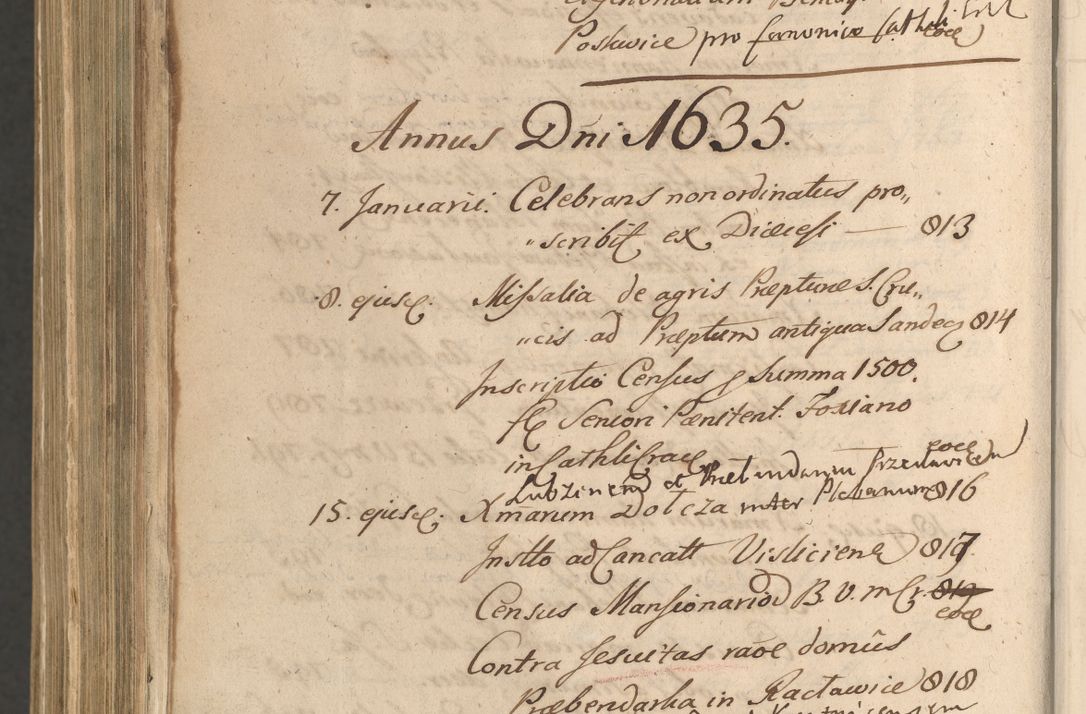 Poslwice pro Canonico Cathli eocl
Annus Dñi 1635.
7. Januarii. Celebrans non ordinatus pro„
„scribit ex Dioecesi — 813
8. ejusd. Missalia de agris Præpturæ S. Cru„
„cis ad Præptum antiqua Sandec 814
Inscriptio Census p summa 1500.
fl Seniori Pænitent. Foxiano
in Cathli Crac eocl
Lubzinen et Prebendarium
15. ejusd. Xmarum Dotcza inter Plebanum 816
Instto ad Cancatt Visliciene 817
Census Mansionariod B. V. m Cr. 819 eocl
Contra Jesuitas raõe domûs
Præbendarha in Ractawice 818